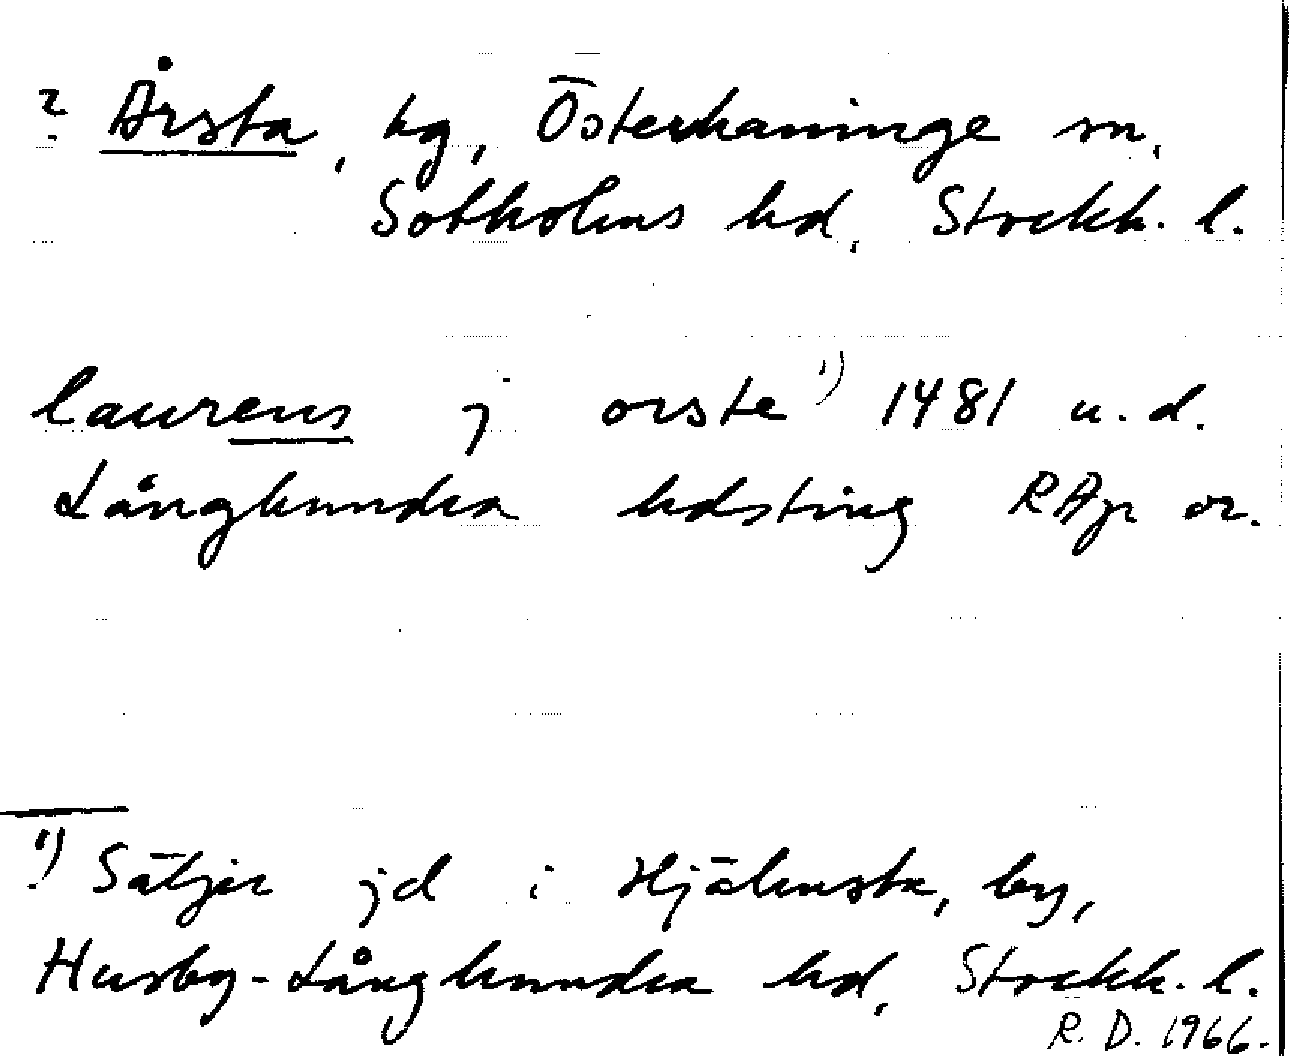 ? Årsta, hg, Österhaninge sn,
Sotholms hd, Stockh. l.
laurens j orste 1) 1481 u. d.
Långhundra hdsting RAp or.
1) Säljer jd i Hjälmsta, by,
Husby-Långhundra hd, Stockh. l.
R. D. 1966.